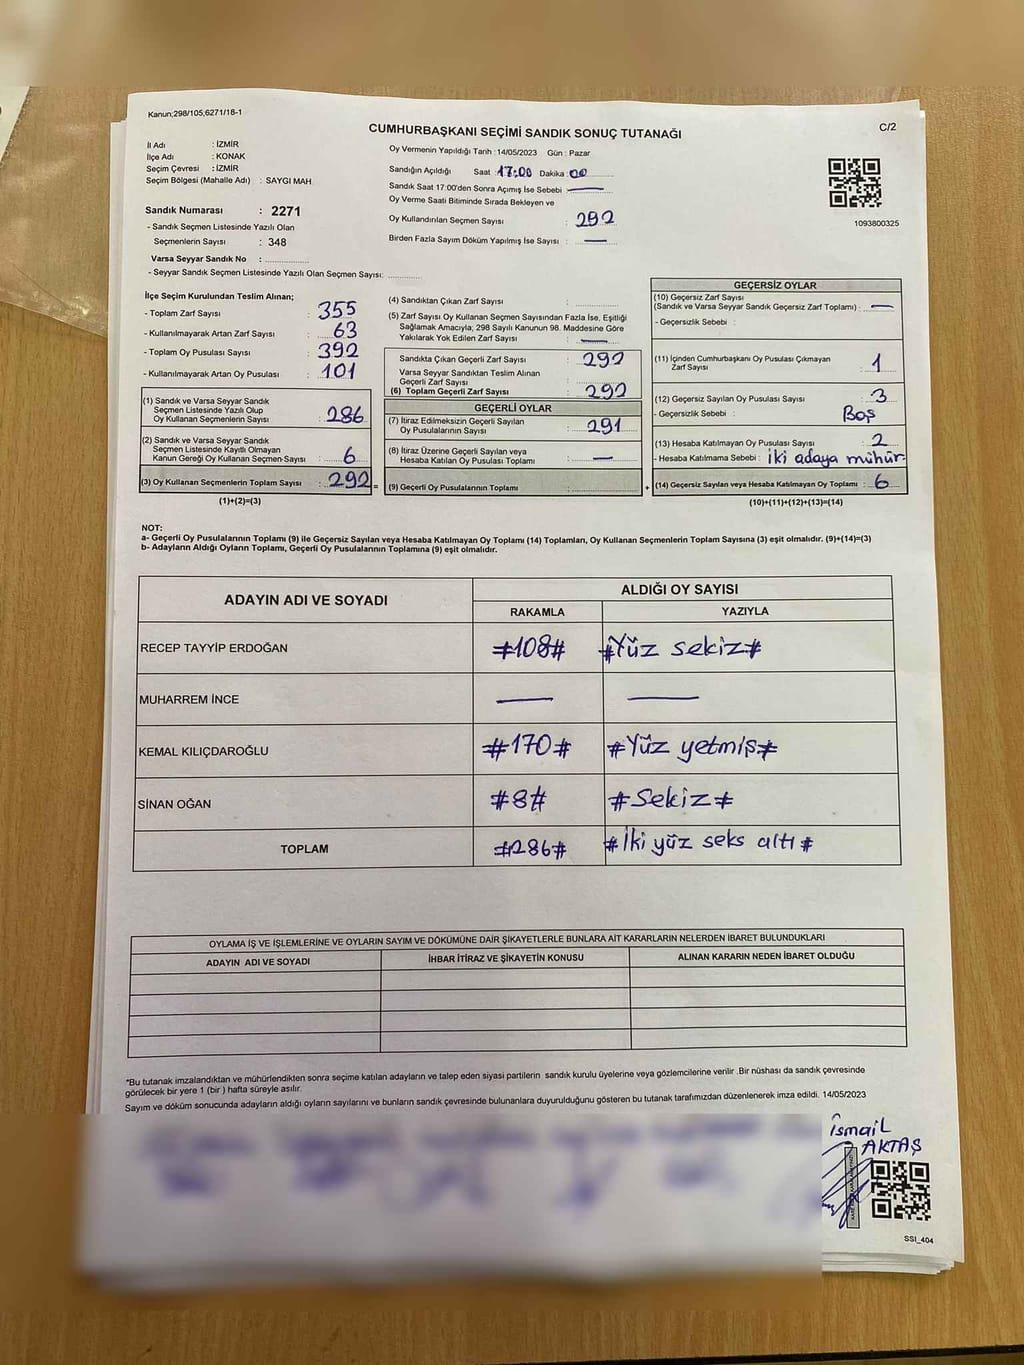 Kanun;298/105,6271/18-1
CUMHURBAŞKANI SEÇİMİ SANDIK SONUÇ TUTANAĞI
C/2
İl Adı : İZMİR
İlçe Adı : KONAK
Seçim Çevresi : İZMİR
Seçim Bölgesi (Mahalle Adı) : SAYGI MAH
Sandık Numarası : 2271
- Sandık Seçmen Listesinde Yazılı Olan
Seçmenlerin Sayısı : 348
Varsa Seyyar Sandık No :
- Seyyar Sandık Seçmen Listesinde Yazılı Olan Seçmen Sayısı:
Oy Vermenin Yapıldığı Tarih : 14/05/2023 Gün : Pazar
Sandığın Açıldığı Saat : 17:00 Dakika : 00
Sandık Saat 17:00'den Sonra Açımış İse Sebebi : —
Oy Verme Saati Bitiminde Sırada Bekleyen ve
Oy Kullandırılan Seçmen Sayısı : 292
Birden Fazla Sayım Döküm Yapılmış İse Sayısı : —
1093800325
İlçe Seçim Kurulundan Teslim Alınan;
- Toplam Zarf Sayısı : 355
- Kullanılmayarak Artan Zarf Sayısı : 63
- Toplam Oy Pusulası Sayısı : 392
- Kullanılmayarak Artan Oy Pusulası : 101
(1) Sandık ve Varsa Seyyar Sandık
Seçmen Listesinde Yazılı Olup
Oy Kullanan Seçmenlerin Sayısı : 286
(2) Sandık ve Varsa Seyyar Sandık
Seçmen Listesinde Kayıtlı Olmayan
Kanun Gereği Oy Kullanan Seçmen Sayısı : 6
(3) Oy Kullanan Seçmenlerin Toplam Sayısı : 292 =
(1)+(2)=(3)
(4) Sandıktan Çıkan Zarf Sayısı :
(5) Zarf Sayısı Oy Kullanan Seçmen Sayısından Fazla İse, Eşitliği
Sağlamak Amacıyla; 298 Sayılı Kanunun 98. Maddesine Göre
Yakılarak Yok Edilen Zarf Sayısı : —
Sandıkta Çıkan Geçerli Zarf Sayısı : 292
Varsa Seyyar Sandıktan Teslim Alınan
Geçerli Zarf Sayısı :
(6) Toplam Geçerli Zarf Sayısı : 292
GEÇERLİ OYLAR
(7) İtiraz Edilmeksizin Geçerli Sayılan
Oy Pusulalarının Sayısı : 291
(8) İtiraz Üzerine Geçerli Sayılan veya
Hesaba Katılan Oy Pusulası Toplamı : —
(9) Geçerli Oy Pusulalarının Toplamı : +
GEÇERSİZ OYLAR
(10) Geçersiz Zarf Sayısı
(Sandık ve Varsa Seyyar Sandık Geçersiz Zarf Toplamı) : —
- Geçersizlik Sebebi :
(11) İçinden Cumhurbaşkanı Oy Pusulası Çıkmayan
Zarf Sayısı : 1
(12) Geçersiz Sayılan Oy Pusulası Sayısı : 3
- Geçersizlik Sebebi : Boş
(13) Hesaba Katılmayan Oy Pusulası Sayısı : 2
- Hesaba Katılmama Sebebi : İki adaya mühür
(14) Geçersiz Sayılan veya Hesaba Katılmayan Oy Toplamı : 6
(10)+(11)+(12)+(13)=(14)
NOT:
a- Geçerli Oy Pusulalarının Toplamı (9) ile Geçersiz Sayılan veya Hesaba Katılmayan Oy Toplamı (14) Toplamları, Oy Kullanan Seçmenlerin Toplam Sayısına (3) eşit olmalıdır. (9)+(14)=(3)
b- Adayların Aldığı Oyların Toplamı, Geçerli Oy Pusulalarının Toplamına (9) eşit olmalıdır.
ADAYIN ADI VE SOYADI
ALDIĞI OY SAYISI
RAKAMLA YAZIYLA
RECEP TAYYİP ERDOĞAN #108# #Yüz sekiz#
MUHARREM İNCE — —
KEMAL KILIÇDAROĞLU #170# #Yüz yetmiş#
SİNAN OĞAN #8# #Sekiz#
TOPLAM #286# #İki yüz seks altı#
OYLAMA İŞ VE İŞLEMLERİNE VE OYLARIN SAYIM VE DÖKÜMÜNE DAİR ŞİKAYETLERLE BUNLARA AİT KARARLARIN NELERDEN İBARET BULUNDUKLARI
ADAYIN ADI VE SOYADI İHBAR İTİRAZ VE ŞİKAYETİN KONUSU ALINAN KARARIN NEDEN İBARET OLDUĞU
*Bu tutanak imzalandıktan ve mühürlendikten sonra seçime katılan adayların ve talep eden siyasi partilerin sandık kurulu üyelerine veya gözlemcilerine verilir .Bir nüshası da sandık çevresinde
görülecek bir yere 1 (bir ) hafta süreyle asılır.
Sayım ve döküm sonucunda adayların aldığı oyların sayılarını ve bunların sandık çevresinde bulunanlara duyurulduğunu gösteren bu tutanak tarafımızdan düzenlenerek imza edildi. 14/05/2023
İsmail
AKTAŞ
SSI_404